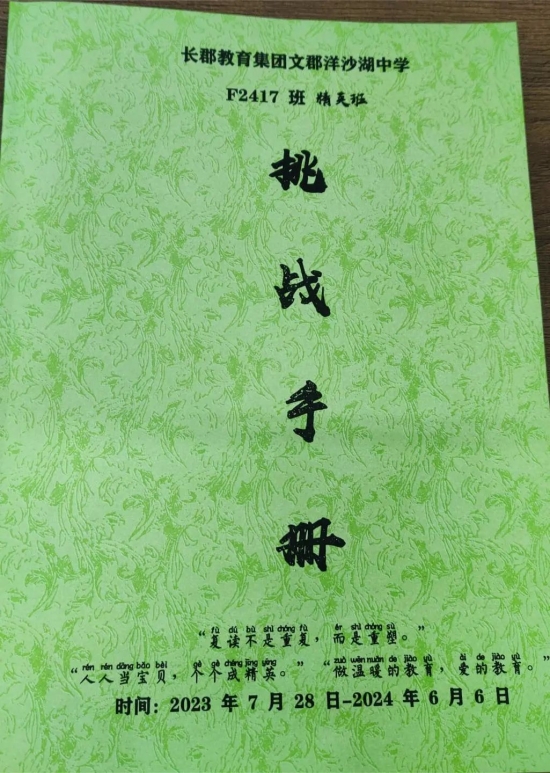 长郡教育集团文郡洋沙湖中学
F2417 班 精英班
挑
战
手
册
fù dú bù shì chóng fù ér shì chóng sù
“复读不是重复，而是重塑。”
rén rén dāng bǎo bèi gè gè chéng jīng yīng zuò wēn nuǎn de jiào yù ài de jiào yù
“人人当宝贝，个个成精英。” “做温暖的教育，爱的教育。”
时间：2023 年 7 月 28 日-2024 年 6 月 6 日